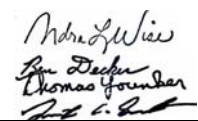 Andre L Wise
Ben Decker
Thomas Younker